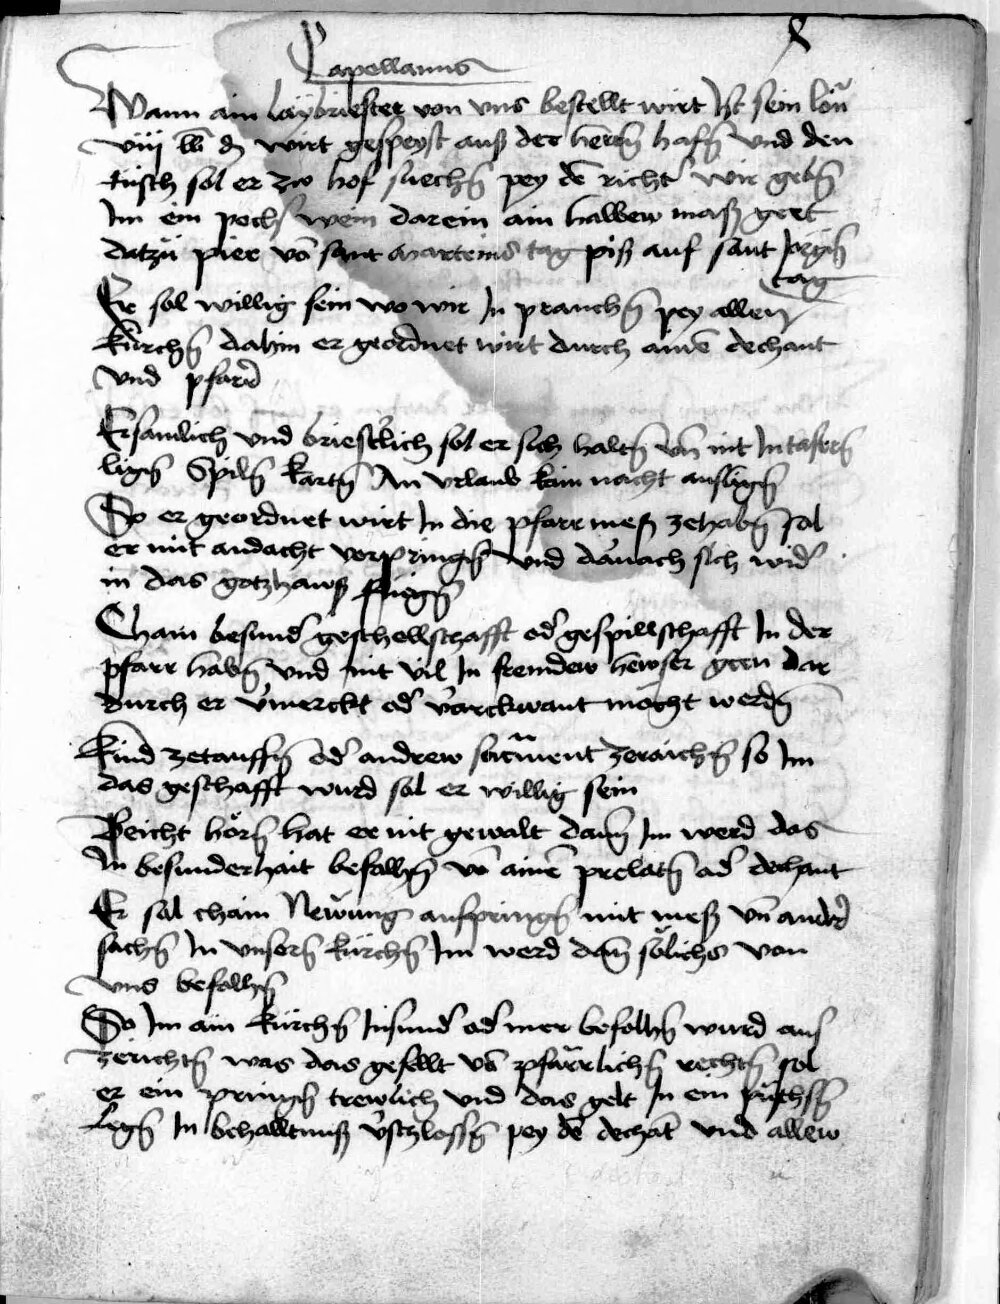 Capellanus
Wann ain laybriester von uns bestellt wirt Ist sein lon
viij lb d wirt gespeyst auß der herrn hafn und den
tisch sol er zw hof suechn pey de richt wir gebn
Im ein pech wein darein ain halbew maß geet
datzu pier vo sant Marteins tag piß auf sant Jorgn
tag
Er sol willig sein wo wir In prauchn pey allen
kirchn dahin er geordnet wirt durch aine dechant
und pfarr
Ersamlich und briesterlich sol er sich haltn un nit In tafern
lign Spiln kartn An urlaub kain nacht ausligen
So er geordnet wirt In die pfarr meß zehabn sol
er mit andacht verpringn und danach sich wid
in das gotzhawß fuegn
Chain besund geschellschafft od gespillschafft In der
pfarr habn und nit vil In fremdew hewser geen dar
durch er vmerckt od varckwant mocht werdn
Kind zetauffn od andrew sacrment zeraichn so Im
das geschafft wurd sol er willig sein
Beicht horn hat er nit gewalt dann Im werd das
In besunderhait befolhn vo aine prelatn od dechant
Er sol chain Newung aufpringn mit meß un andrn
sachn In unsern kirchn Im werd dan solichs von
uns befolhn
So Im ain kirchn Insund od mer befolhn wurd aus
zerichtn was das gefellt vo pfarrlichn rechtn sol
er ein pringn trewlich und das gelt In ein puchsn
legn In behalltnuß vschlossn pey de dechat und allew